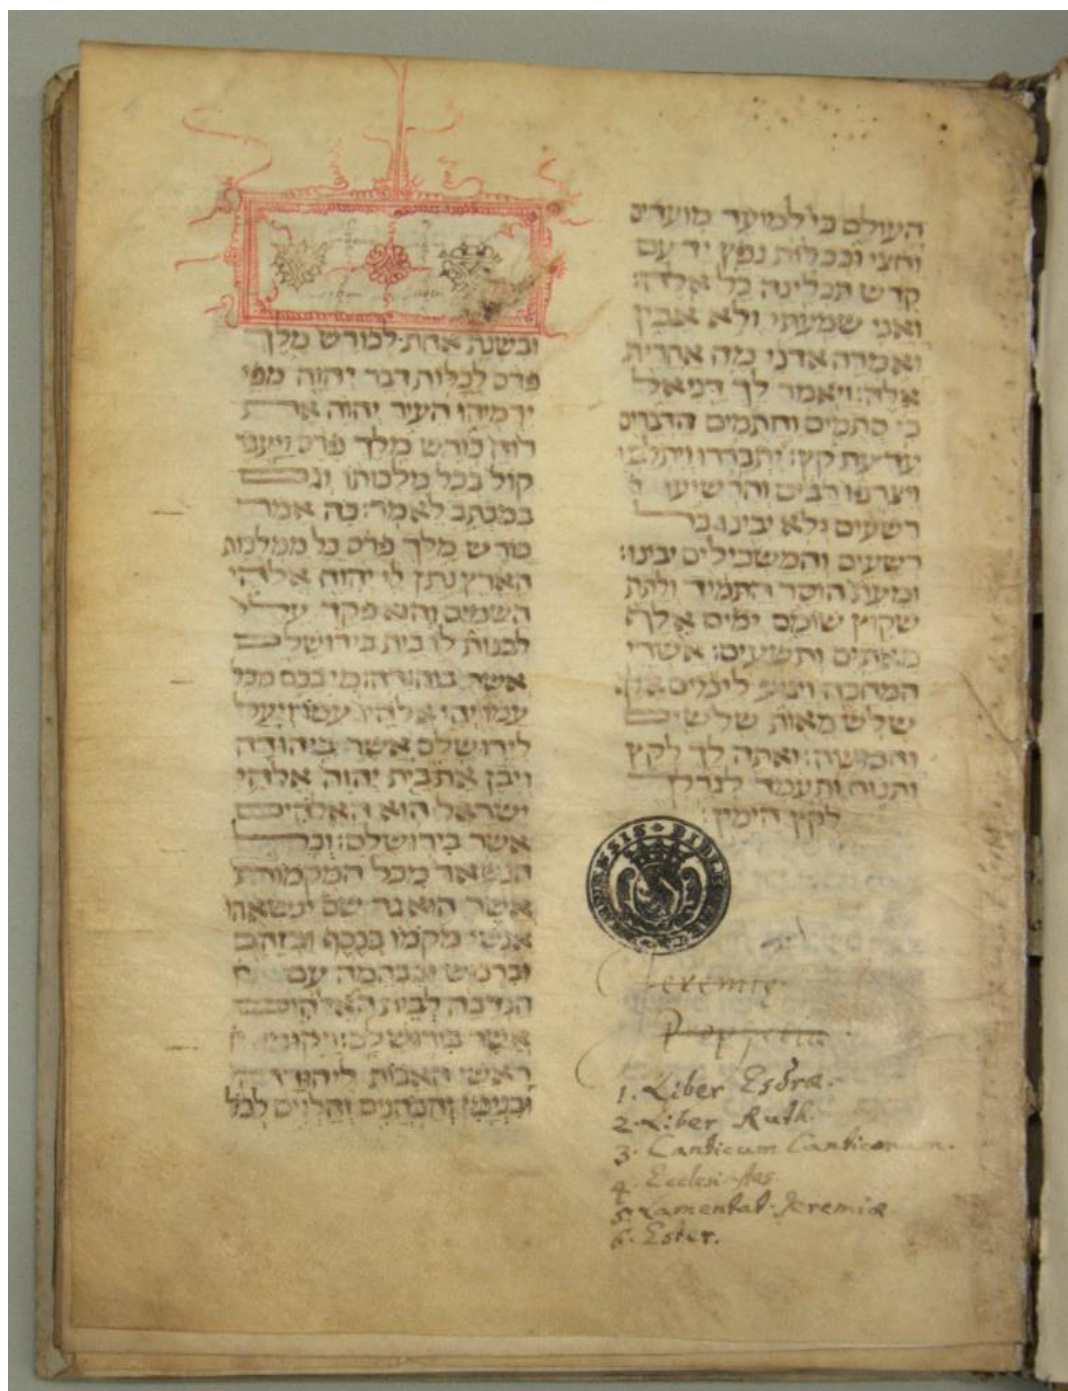 העולם כי למועד מועדים
וחצי וככלות נפץ יד עם
קדש תכלינה כל אלה:
ואני שמעתי ולא אבין
ואמרה אדני מה אחרית
אלה: ויאמר לך דניאל
כי סתמים וחתמים הדברים
עד עת קץ: יתבררו ויתלבנו
ויצרפו רבים והרשיעו
רשעים ולא יבינו כל
רשעים והמשכילים יבינו:
ומעת הוסר התמיד ולתת
שקוץ שומם ימים אלף
מאתים ותשעים: אשרי
המחכה ויגיע לימים אלף
שלש מאות שלשים
וחמשה: ואתה לך לקץ
ותנוח ותעמד לגרלך
לקץ הימין:
Jeremie
Prophetia
1. Liber Esdræ.
2. Liber Ruth.
3. Canticum Canticorum.
4. Ecclesiastes.
5. Lamentat. Jeremiæ.
6. Ester.
ובשנת אחת לכורש מלך
פרס לכלות דבר יהוה מפי
ירמיהו העיר יהוה את
רוח כורש מלך פרס ויעבר
קול בכל מלכותו וגם
במכתב לאמר: כה אמר
כורש מלך פרס כל ממלכות
הארץ נתן לי יהוה אלהי
השמים והוא פקד עלי
לבנות לו בית בירושלים
אשר ביהודה: מי בכם מכל
עמו יהי אלהיו עמו ויעל
לירושלם אשר ביהודה
ויבן את בית יהוה אלהי
ישראל הוא האלהים
אשר בירושלם: וכל
הנשאר מכל המקמות
אשר הוא גר שם ינשאוהו
אנשי מקמו בכסף ובזהב
וברכוש ובבהמה עם
הנדבה לבית האלהים
אשר בירושלם: ויקומו
ראשי האבות ליהודה
ובנימן והכהנים והלוים לכל